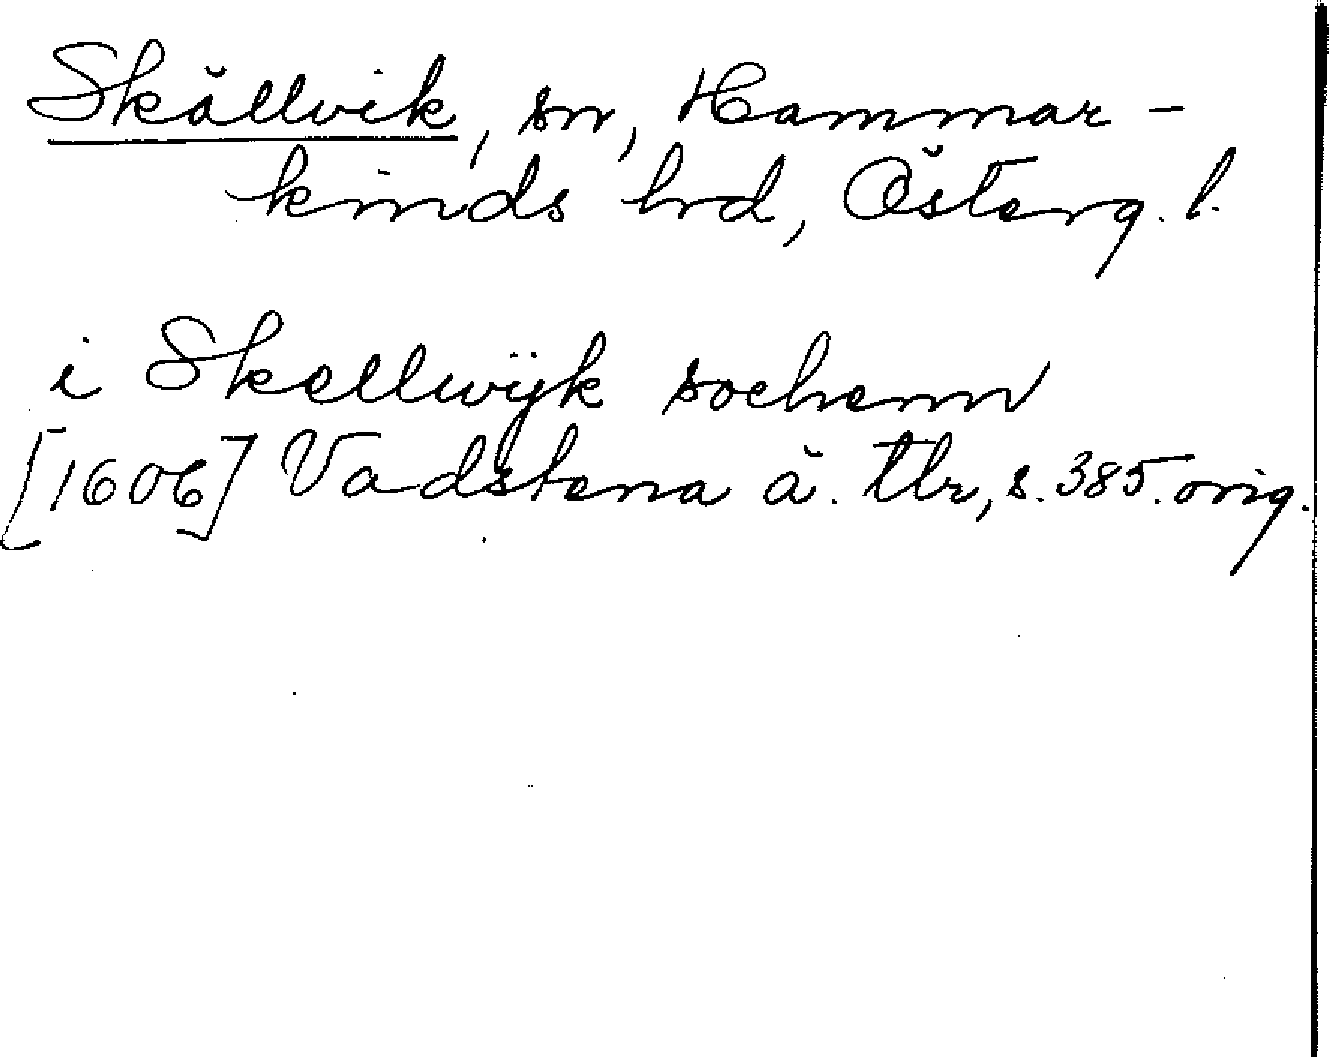 Skällvik, sn, Hammar-
kinds hrd, Österg. l.
i Skellwijk sochenn
[1606] Vadstena ä. tbr, s. 385. orig.